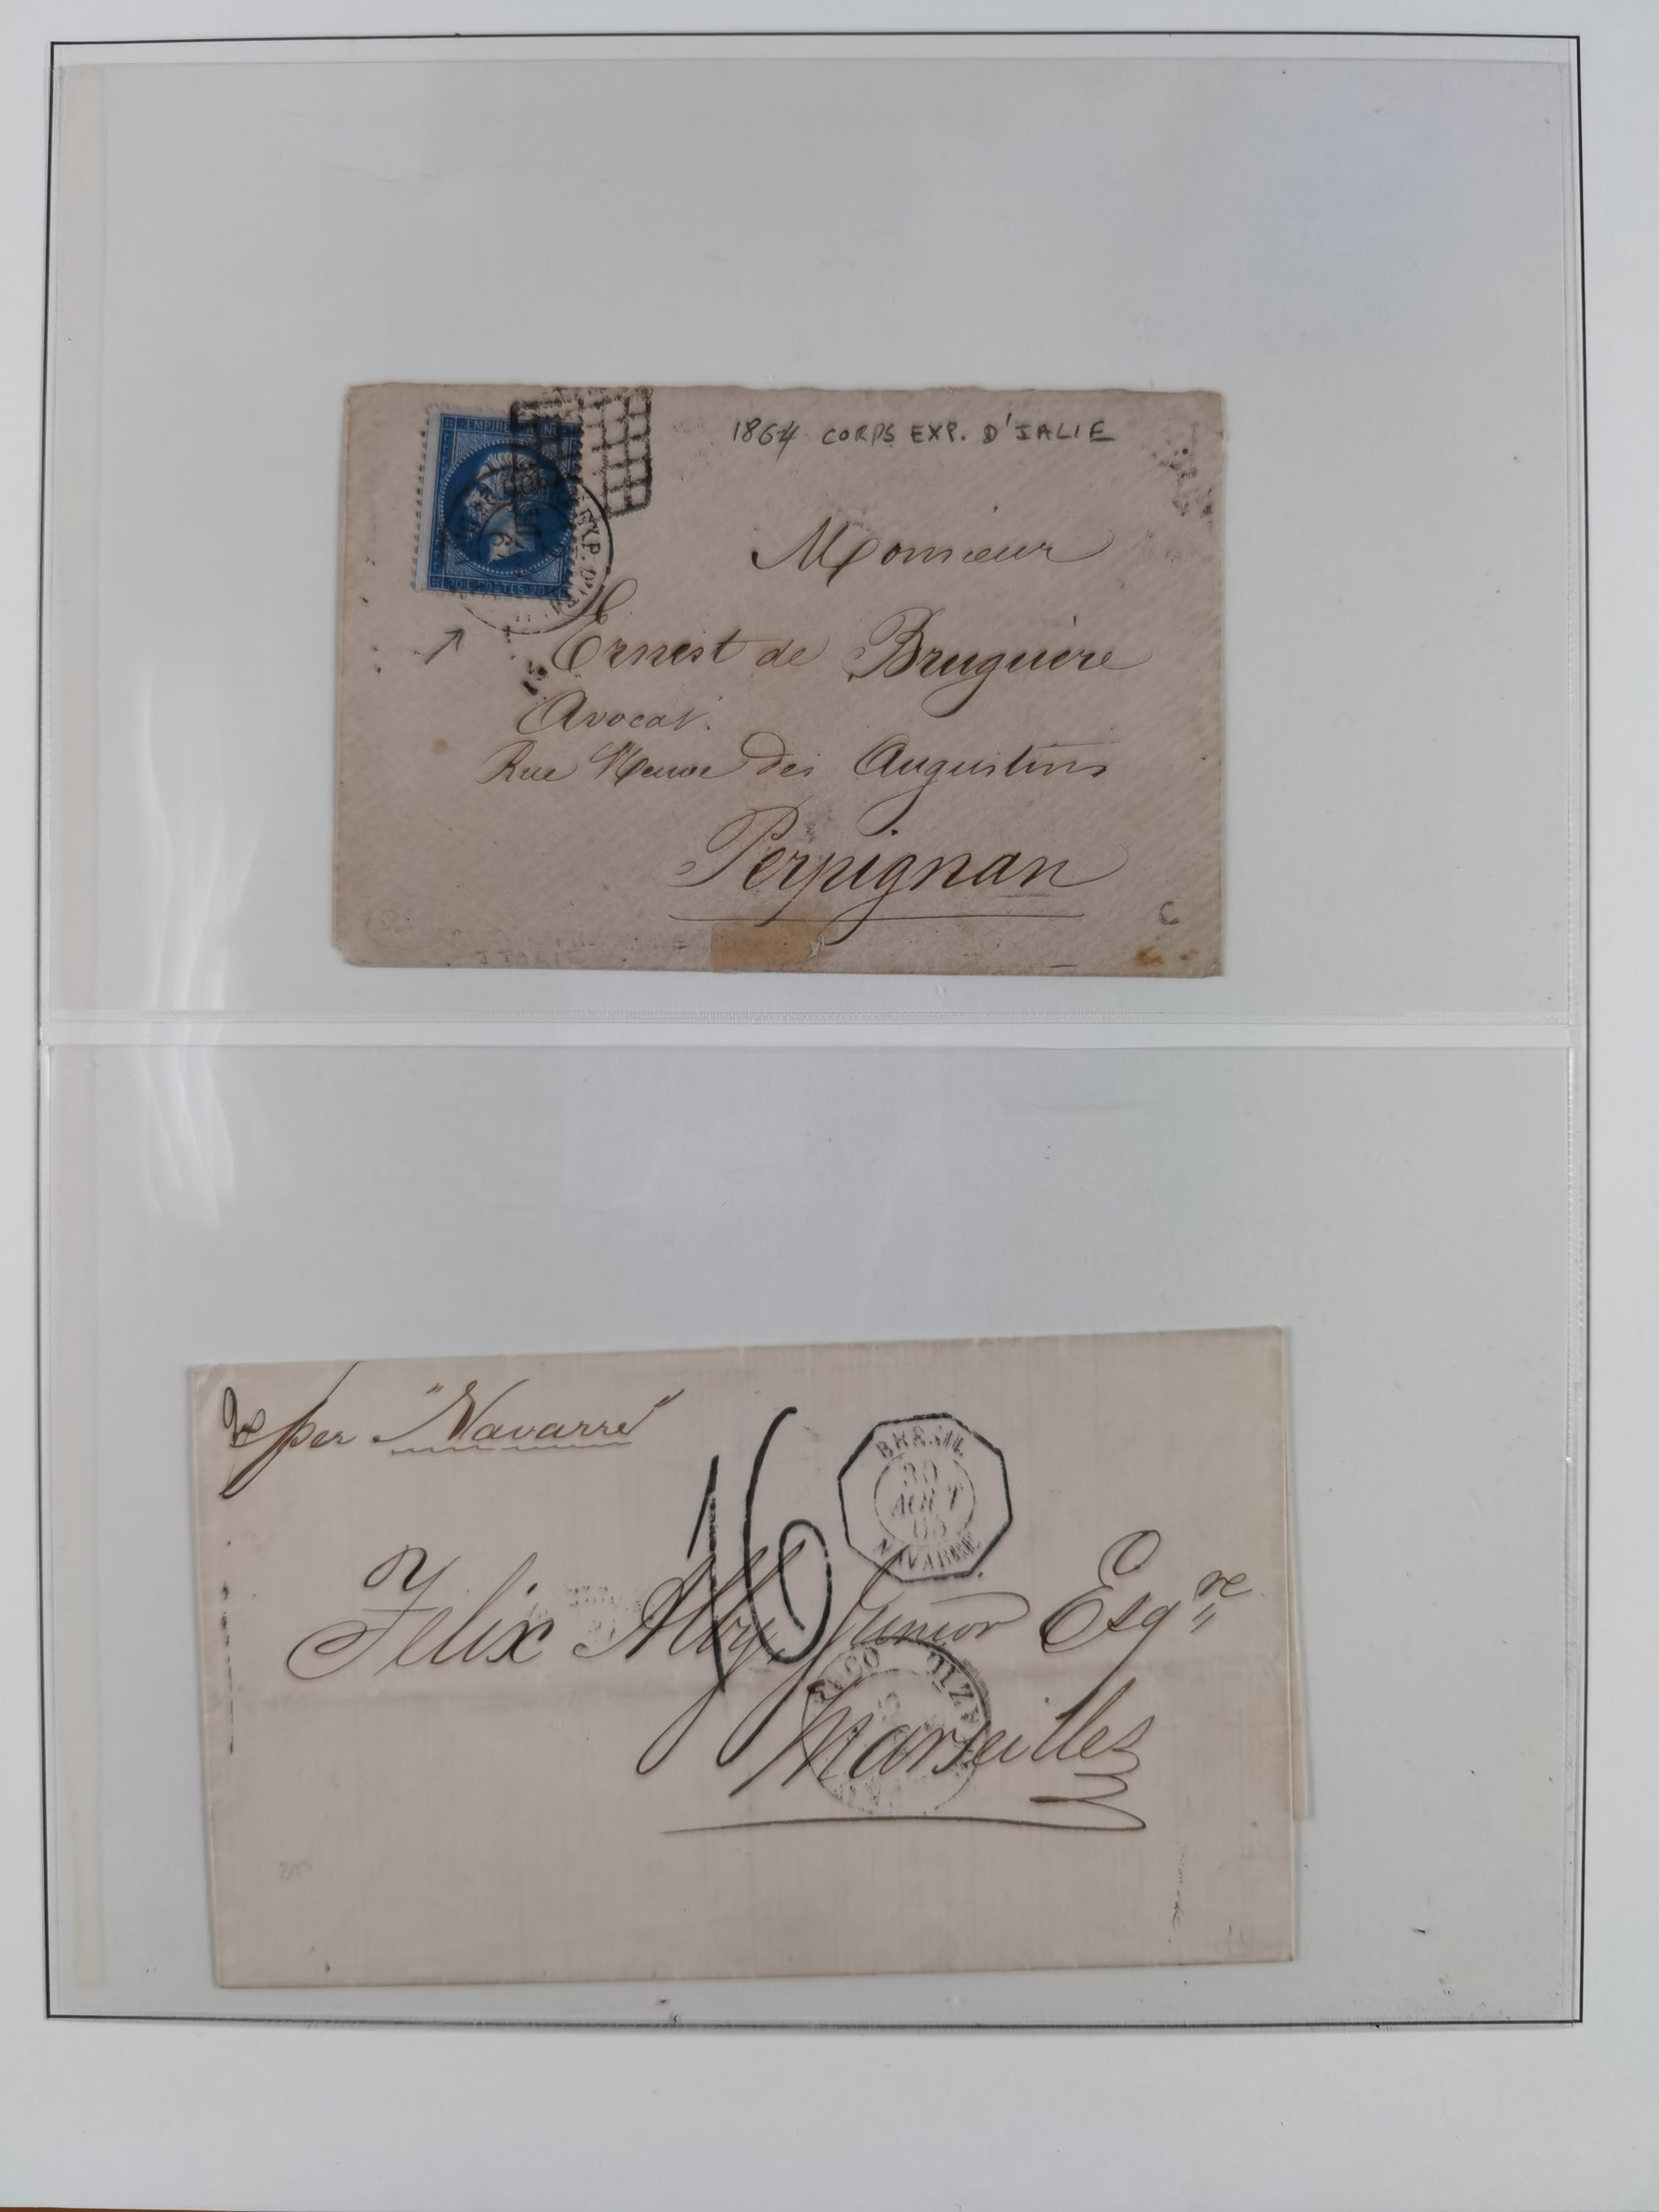 1864 CORPS EXP. D'IALIE
EMPIRE
20 C POSTES 20 C
EXP. D'IT
Monsieur
Ernest de Bruguère
Avocat.
Rue Neuve des Augustins
Perpignan
C
ITALIE
per "Navarre"
16
BRESIL
30
AOUT
65
NAVARRE
Felix Junior Esqre
Marseilles